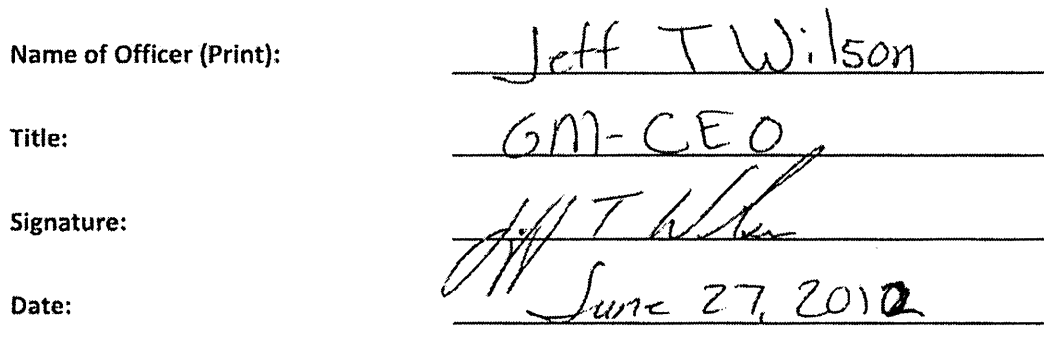 Name of Officer (Print): Jeff T Wilson
Title: GM-CEO
Signature: Jeff T Wilson
Date: June 27, 2012